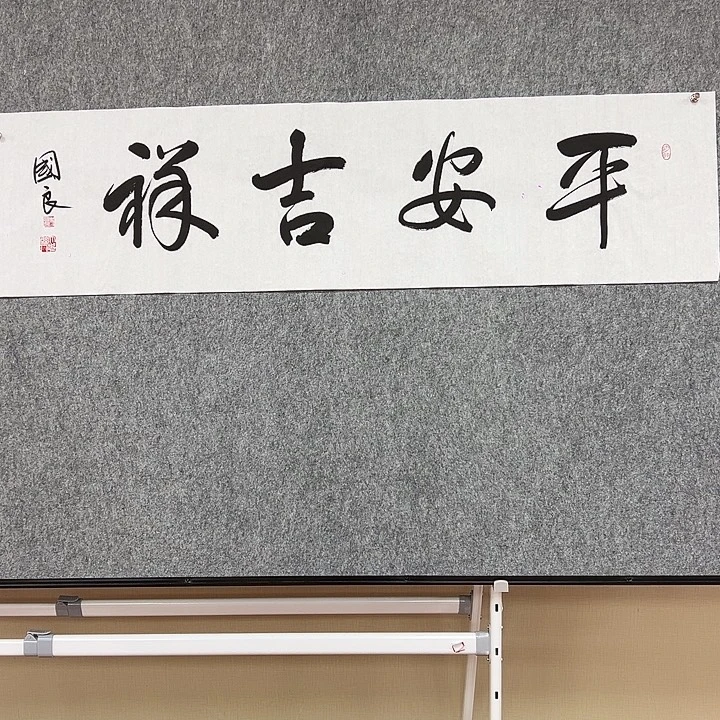 平安吉祥
國良